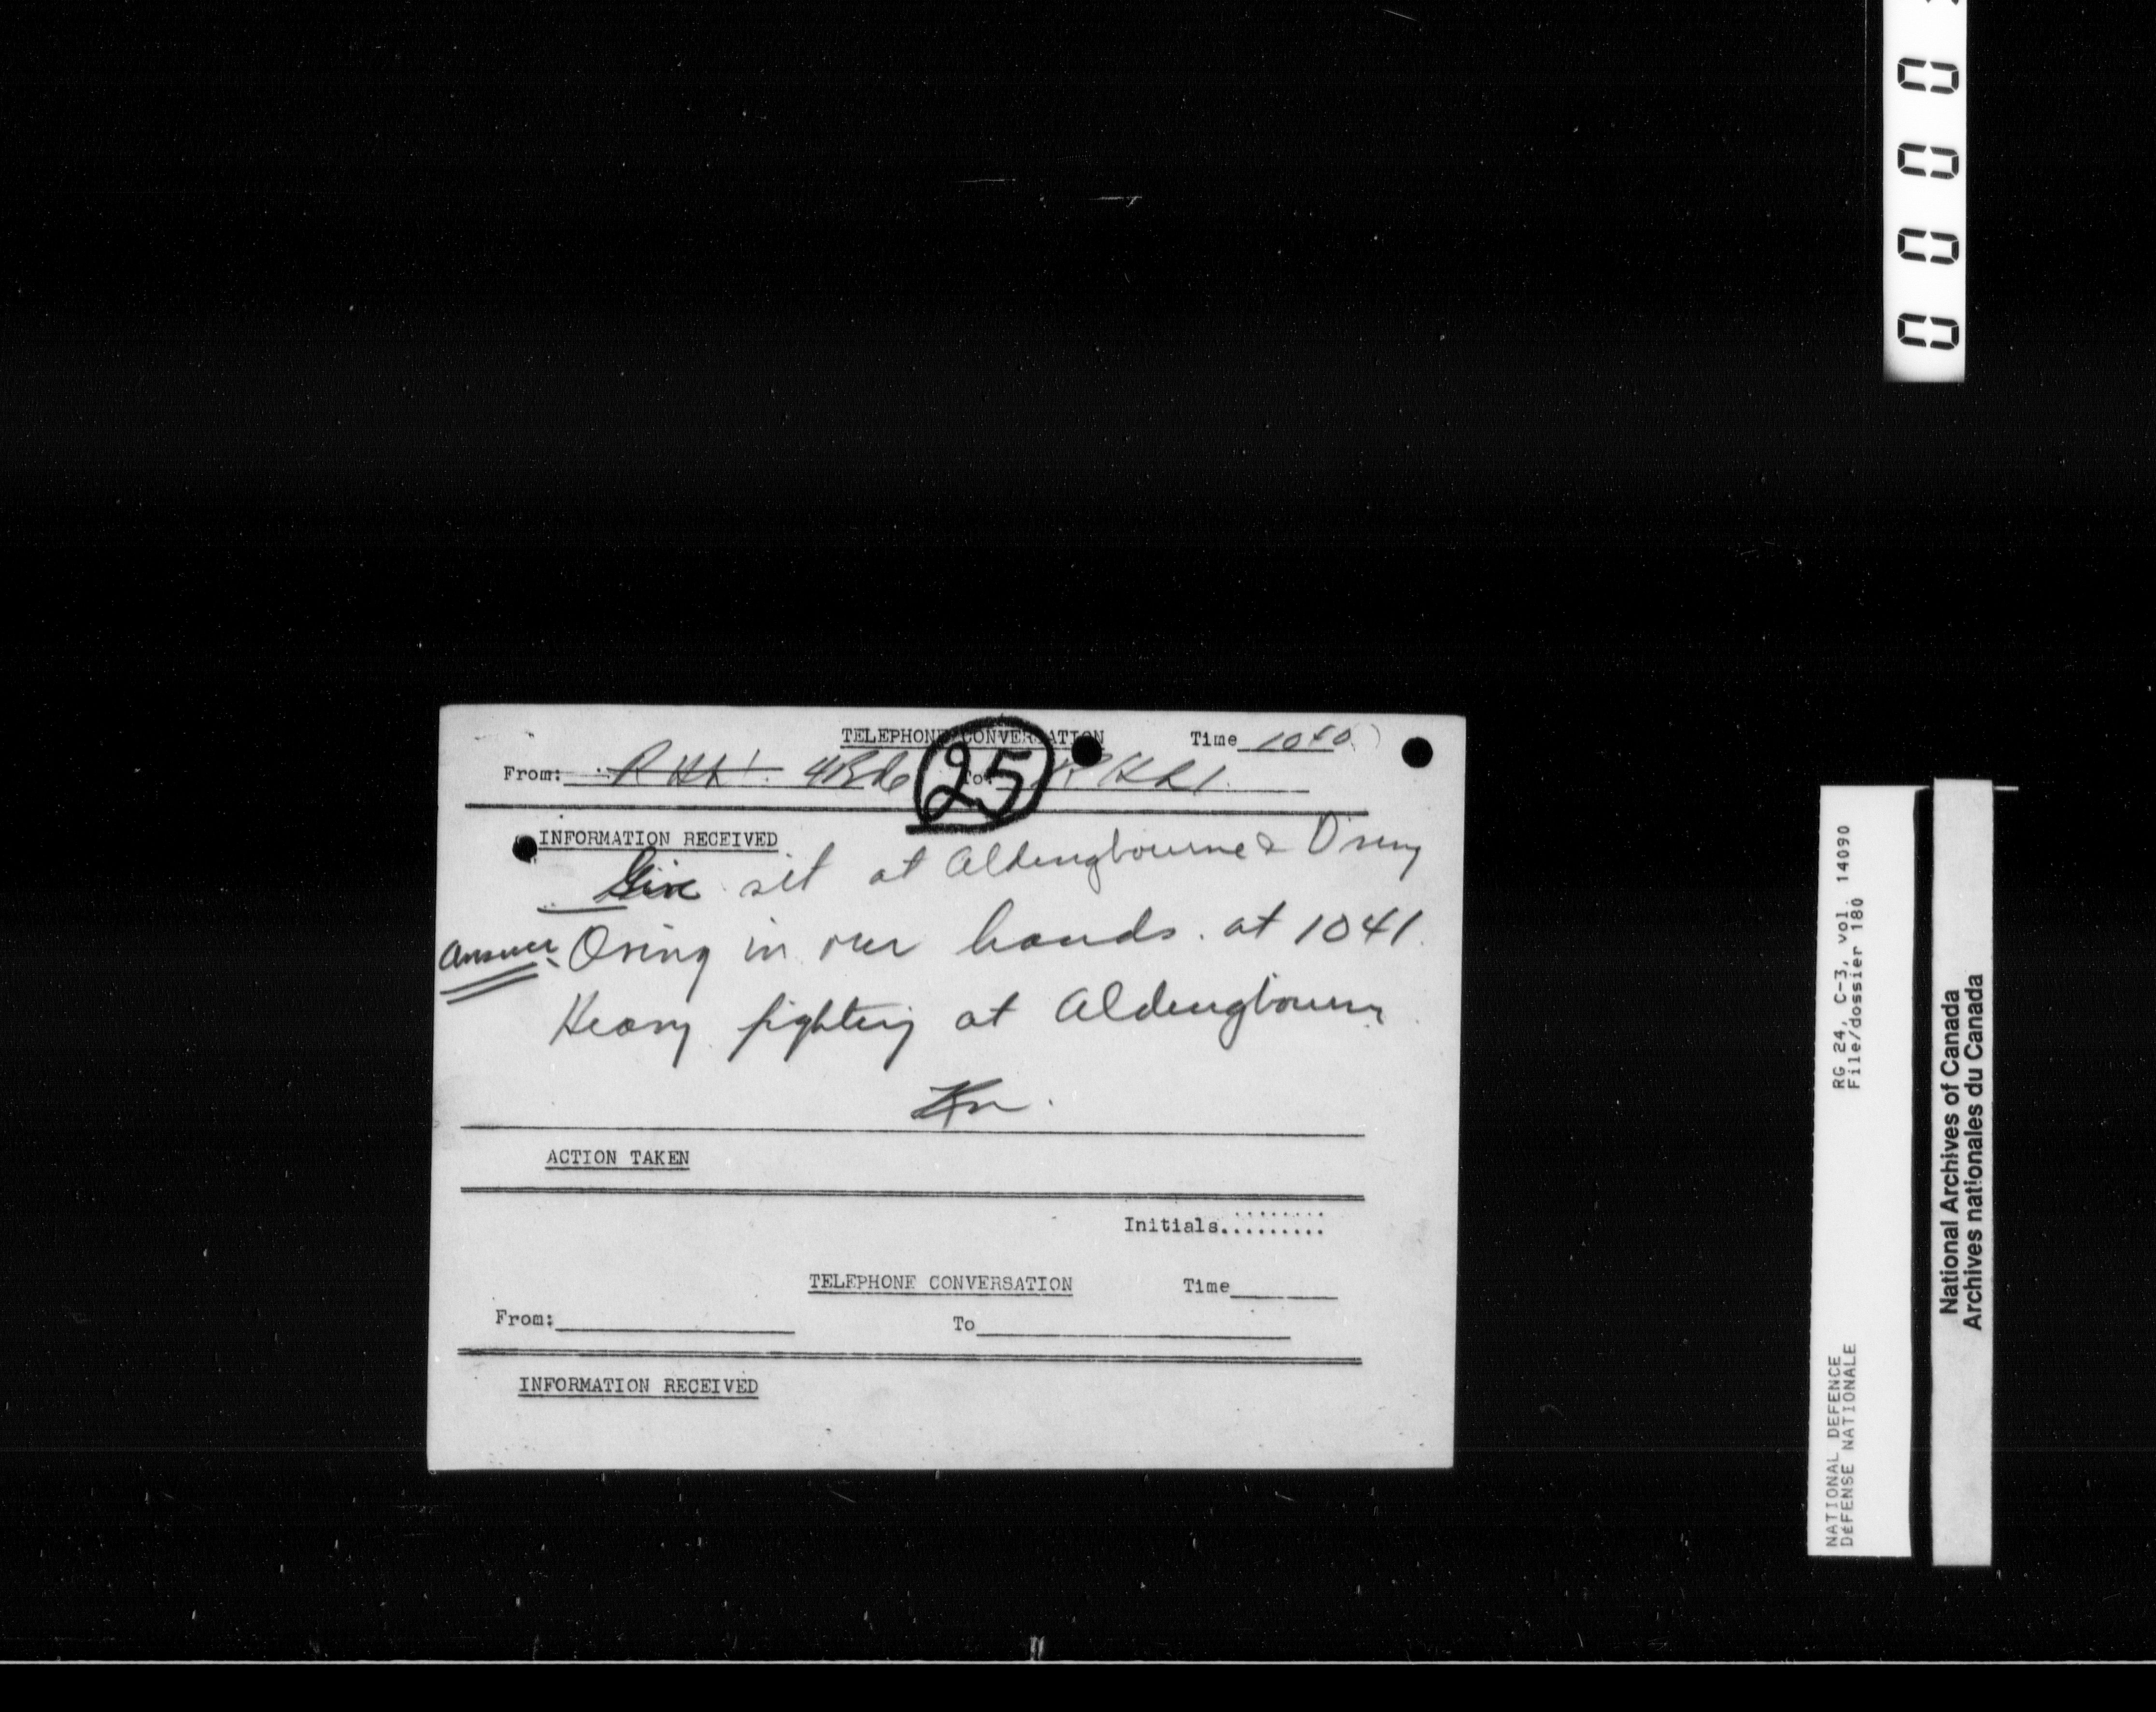 TELEPHONE CONVERSATION Time 1050
From: 4 Bde To: RHLI
25
INFORMATION RECEIVED
Give sit at Aldingbourne & Oving
Answer Oving in our hands. at 1041.
Heavy fighting at Aldingbourne
ACTION TAKEN
Initials.........
TELEPHONE CONVERSATION Time
From: To
INFORMATION RECEIVED
0 0 0 0
RG 24, C-3, vol. 14090
File/dossier 180
NATIONAL DEFENCE
DÉFENSE NATIONALE
National Archives of Canada
Archives nationales du Canada